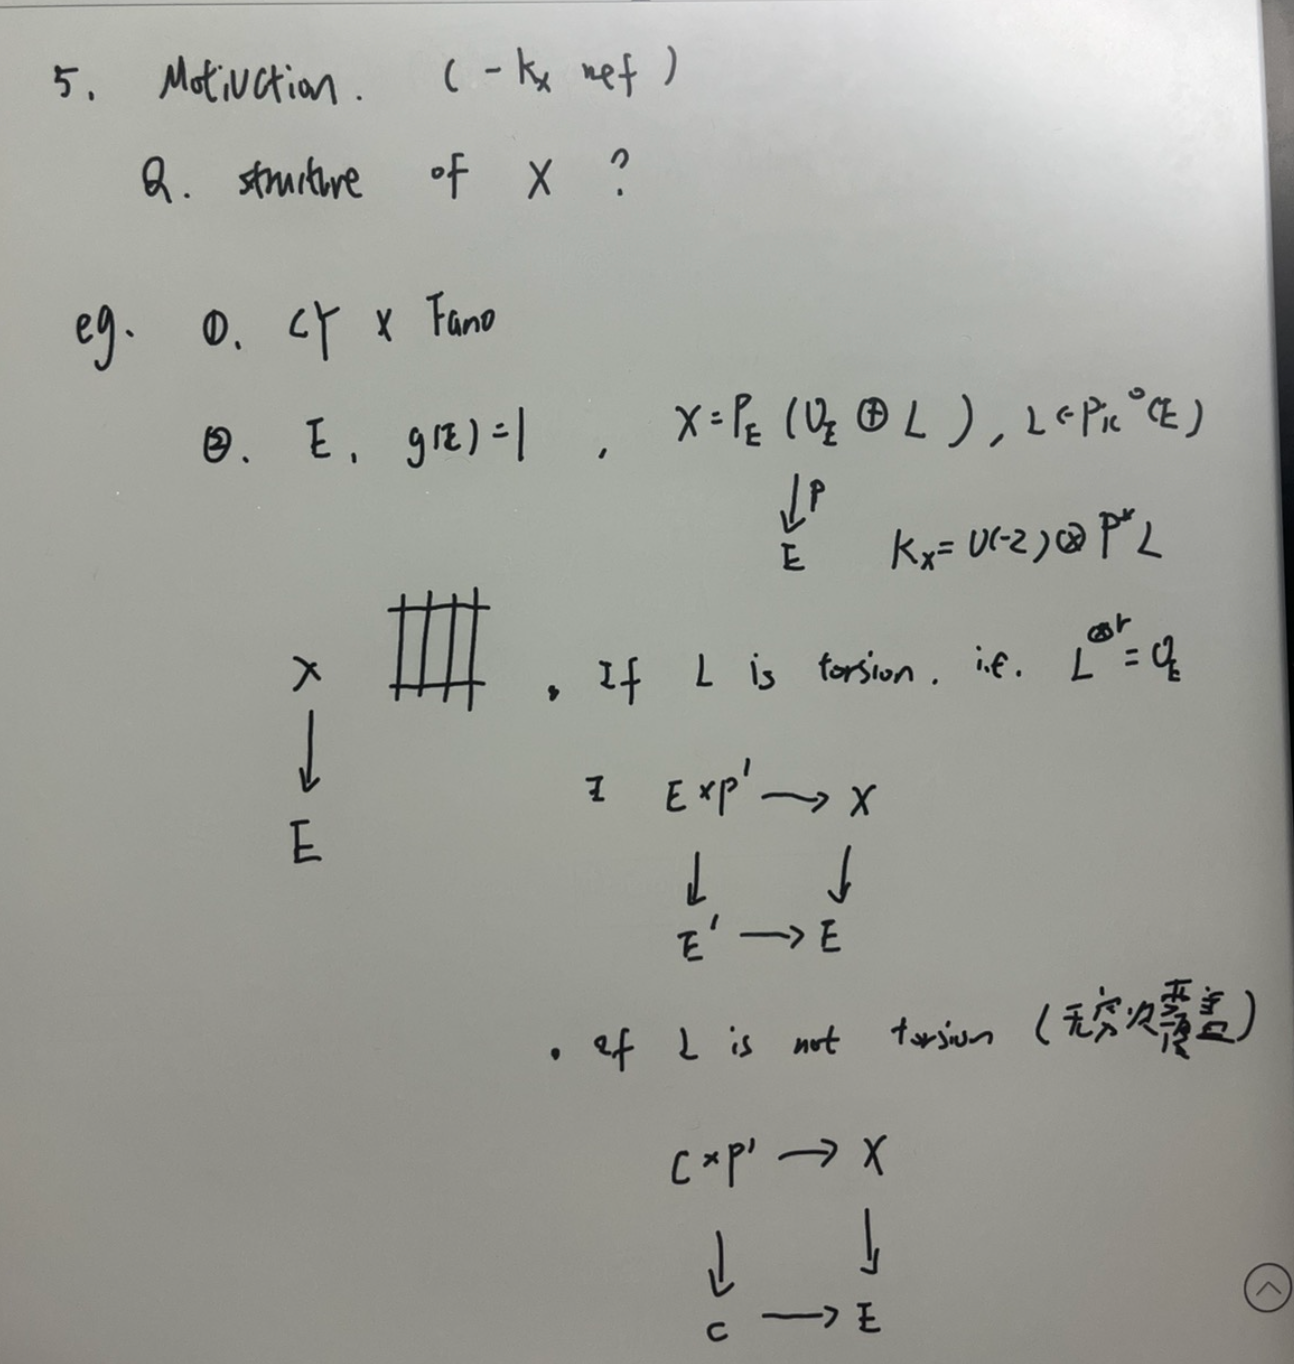 5. Motivction. (-Kx nef)
Q. structure of X ?
eg. ①. CY x Fano
②. E, g(E)=1, X=P_E (O_E ⊕ L), L∈Pic°(E)
↓P
E K_X= O(-2)⊗P*L
X
. If L is torsion. i.e. L^{⊗r}=O_E
↓
E×P' → X
E
↓ ↓
E' → E
. If L is not torsion (无穷次覆盖)
C×P' → X
↓ ↓
C → E